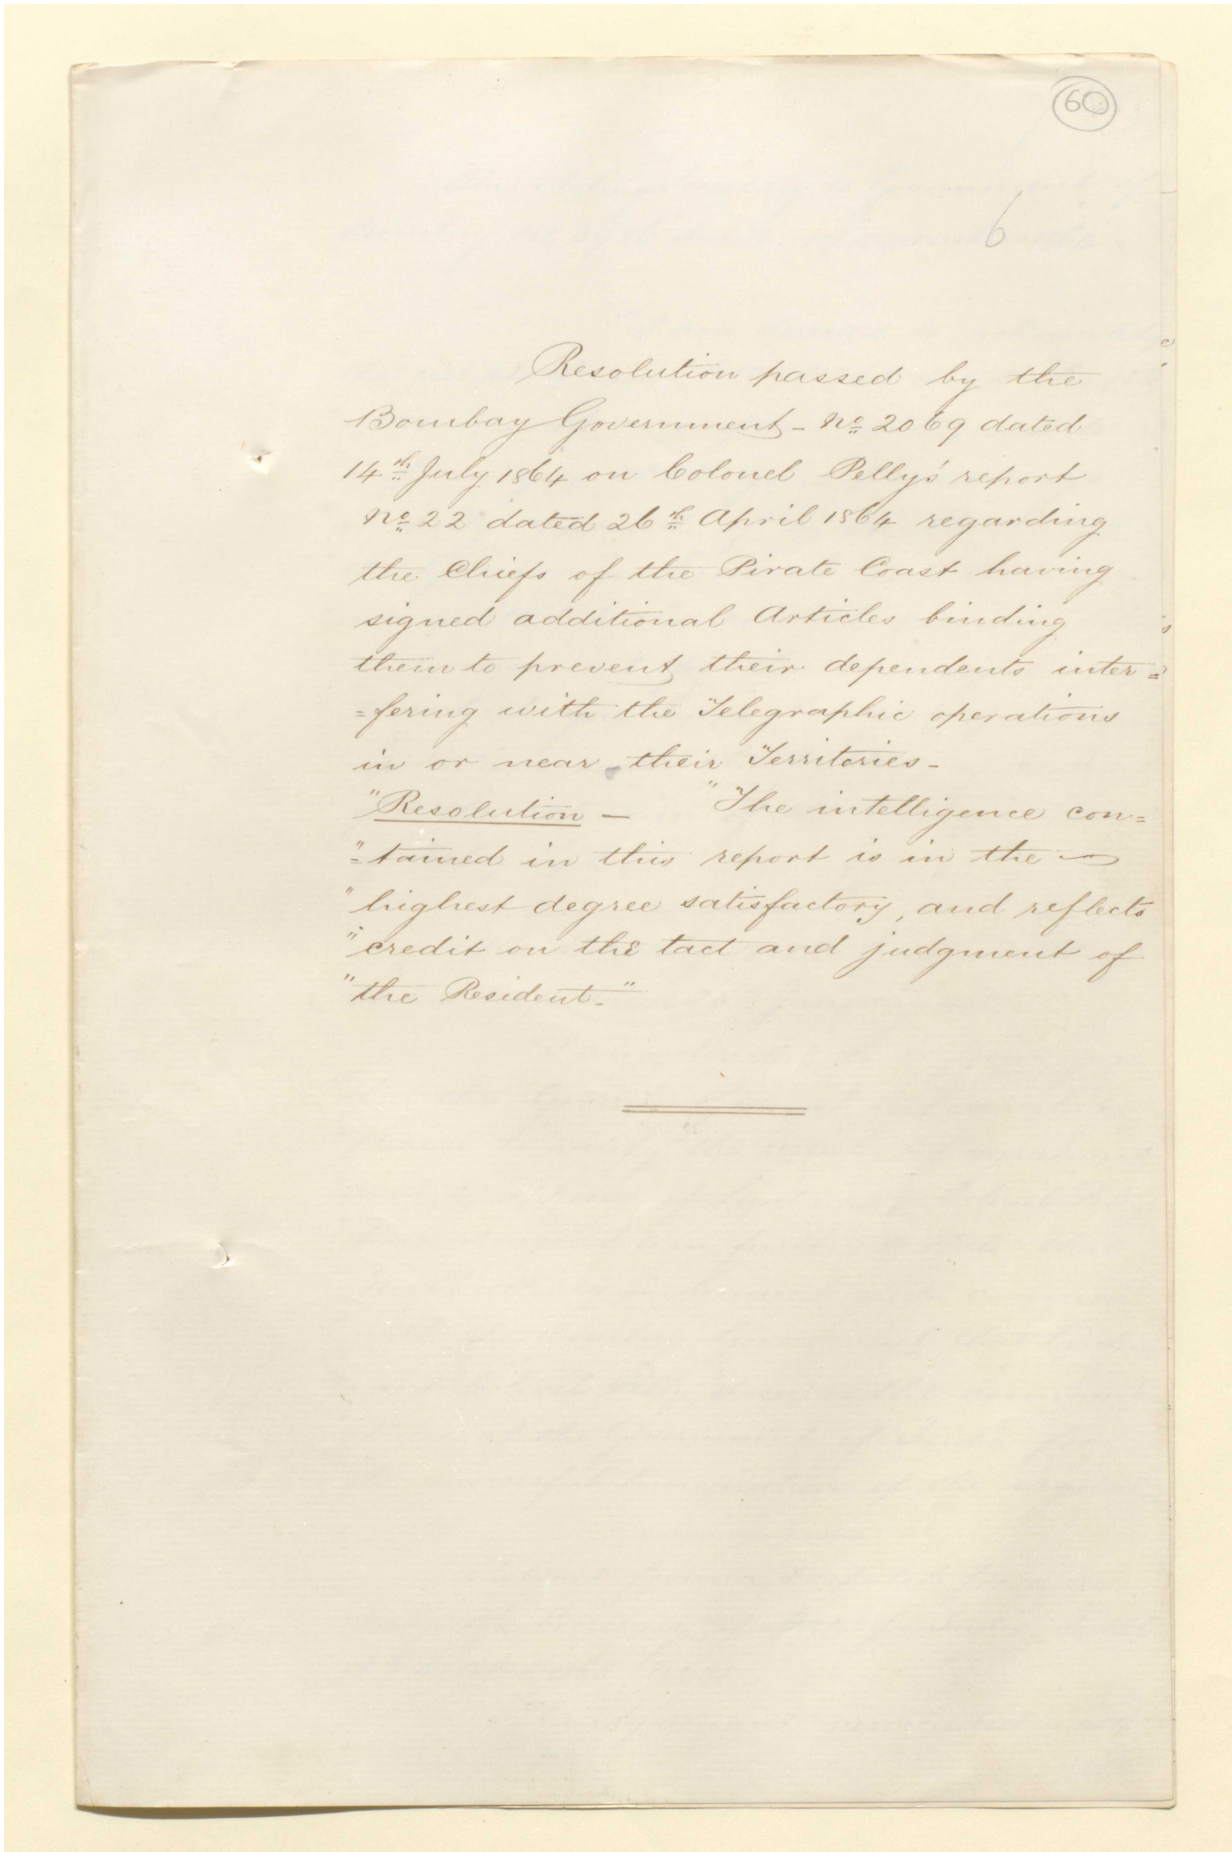 60
6
Resolution passed by the
Bombay Government - No 2069 dated
14th July 1864 on Colonel Pelly's report
No 22 dated 26th April 1864 regarding
the Chiefs of the Pirate Coast having
signed additional Articles binding
them to prevent their dependents inter=
=fering with the Telegraphic operations
in or near their Territories-
"Resolution — "The intelligence con=
"=tained in this report is in the —
"highest degree satisfactory, and reflects
"credit on the tact and judgment of
"the Resident-"